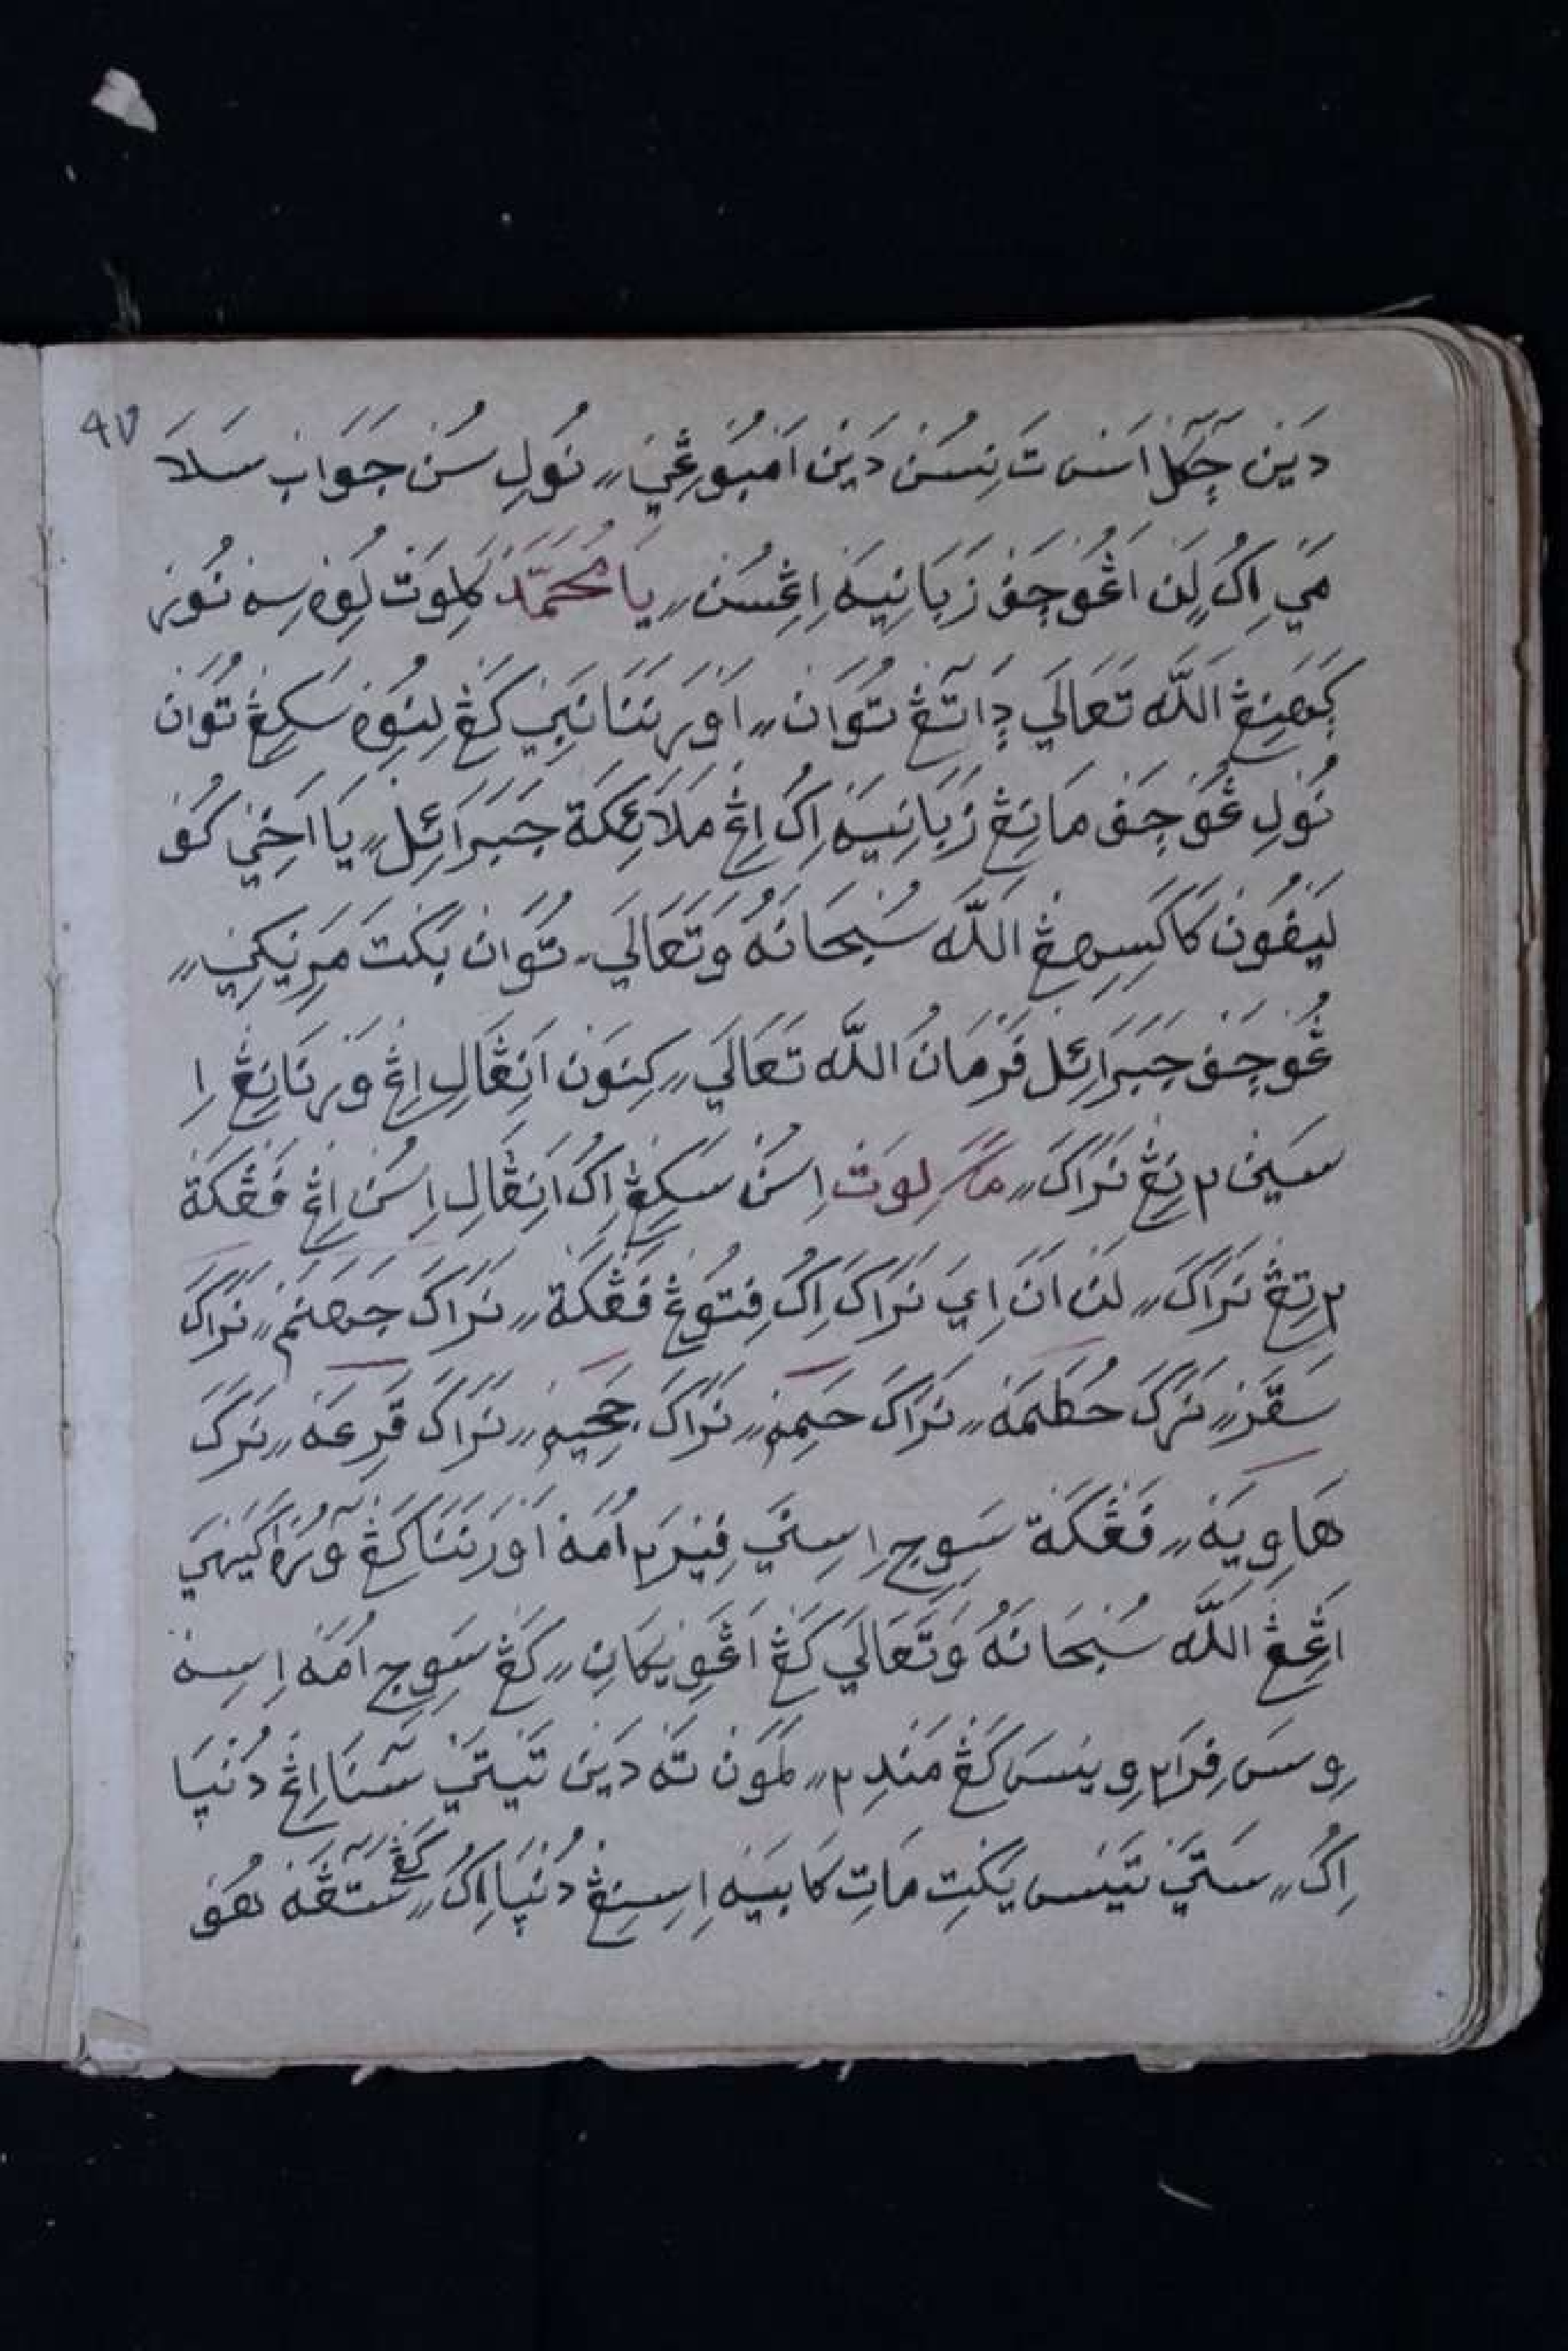 ٩٧
دَيْن چَكَل اَسْ تَ نِسُن دَيْن اَمْبُوْغِيْ،، نُولِ سُن جَوَاب سَلَا
مَي اِكُ لَن اڠُوْچَف زَبَانِيَه اِڠْسُن،، يَا مُحَمَّد كَلِوَت لُوِه سِه نُور
كَهنِڠ اللّٰه تَعَالَي دِاتَڠ تُوَان،، اَوَرَننَا نَبِي كَڠ لِنُوِه سَكِڠ تُوَان
نُولِ ڠُوْچَف مَانِڠ زَبَانِيَه اِكُ اِڠ مَلَائِكَة جَبَرَائِل،، يَا اَخِي كُو
لَيفُون كَاكَسِهڠ اللّٰه سُبْحَانَهُ وَتَعَالَي،، تُوَان بَكَتَ مَرَنِيكِي،،
ڠُوْچَف جَبَرَائِل فَرْمَانُ اللّٰه تَعَالَي،، كِنَوْن اَنِڠَالِ اِڠ وَرْنَانِڠ اِ
سَيْن٢نِڠ نَرَاكَ،، مَكَ لِوَت اِسُن سَكِڠ اِكُ اَنِڠَالِ اِسُن اِڠ فَڠْكَة
٢تِڠ نَرَاكَ،، لَن اَنَ اِي نَرَاكَ اِكُ فِتُوڠ فَڠْكَة،، نَرَاكَ جَهَنَّم،، نَرَاكَ
سَقَر،، نَرَكَ حُطَمَه،، نَرَاكَ حَمِيم،، نَرَاكَ جَحِيم،، نَرَاكَ قَرِعَه،، نَرَكَ
هَاوِيَه،، فَڠْكَة سَوِجِ اِسِنَي فِيْرَ٢ اُمَه اَوَرَننَا كَڠ وَرُه اَكَيهَي
اَڠِڠ اللّٰه سُبْحَانَهُ وَتَعَالَي كَڠ اَڠَوِيكَانِ،، كَڠ سَوِجِ اُمَه اِسِه
وِسَ فِرَ٢ وِيسَ كَڠ مَنْدِ٢،، لَمَوْن تَه دَيْن تَيْتَي سَنَا اِڠ دُنْيَا
اِكُ،، سَتَي تَيْسَ يَكْتِ مَاتِ كَابَيه اِسِنِڠ دُنْيَا اِكُ،، كَڠ سَتَڠَه هُوَ